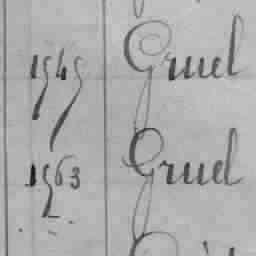 1549 Gruel
1563 Gruel